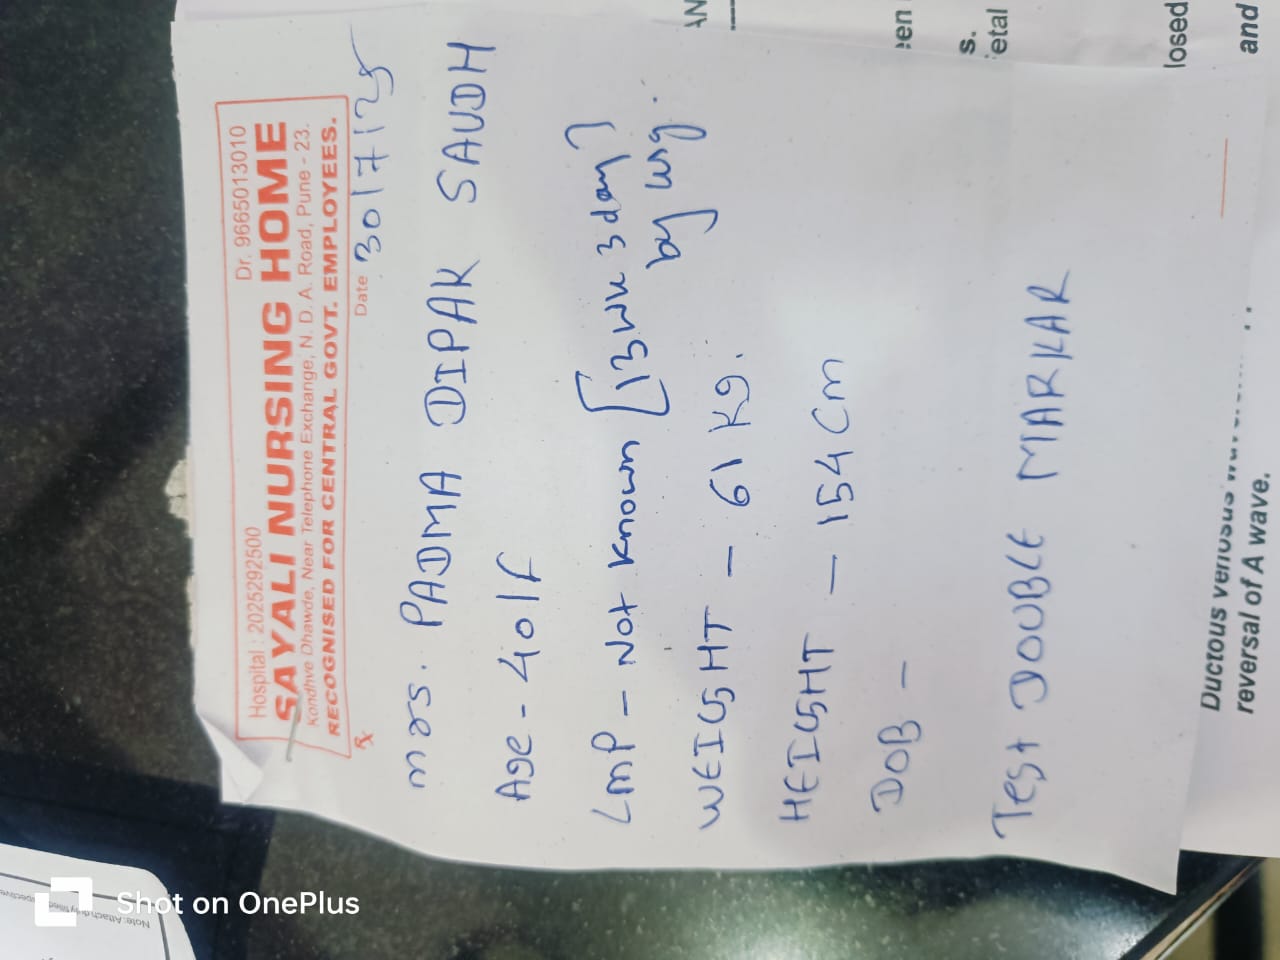 Hospital : 2025292500 Dr. 9665013010
SAYALI NURSING HOME
Kondhve Dhawde, Near Telephone Exchange, N. D. A. Road, Pune - 23.
RECOGNISED FOR CENTRAL GOVT. EMPLOYEES.
Rx Date 30/7/25
mrs. PADMA DIPAK SAUDH
Age - 40/F
LMP - Not known [13 wk 3 day]
by usg.
WEIGHT - 61 Kg.
HEIGHT - 154 Cm
DOB -
Test DOUBLE MARKAR
AN
een
s.
etal
losed
and
Ductous venosus
reversal of A wave.
Note: Attach duly filled
Shot on OnePlus